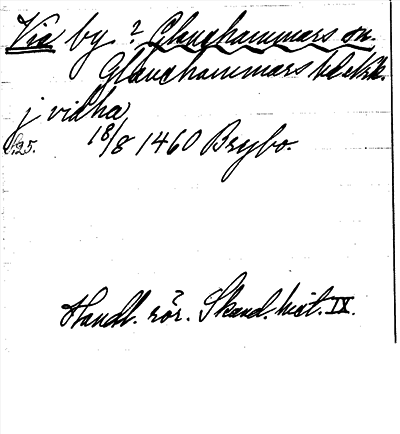 Via by ? Glanshammars sn.
Glanshammars bd
j vidha
S. 25. 18/8 1460 Brybo.
Handl. rör. Skand. hist. IX.